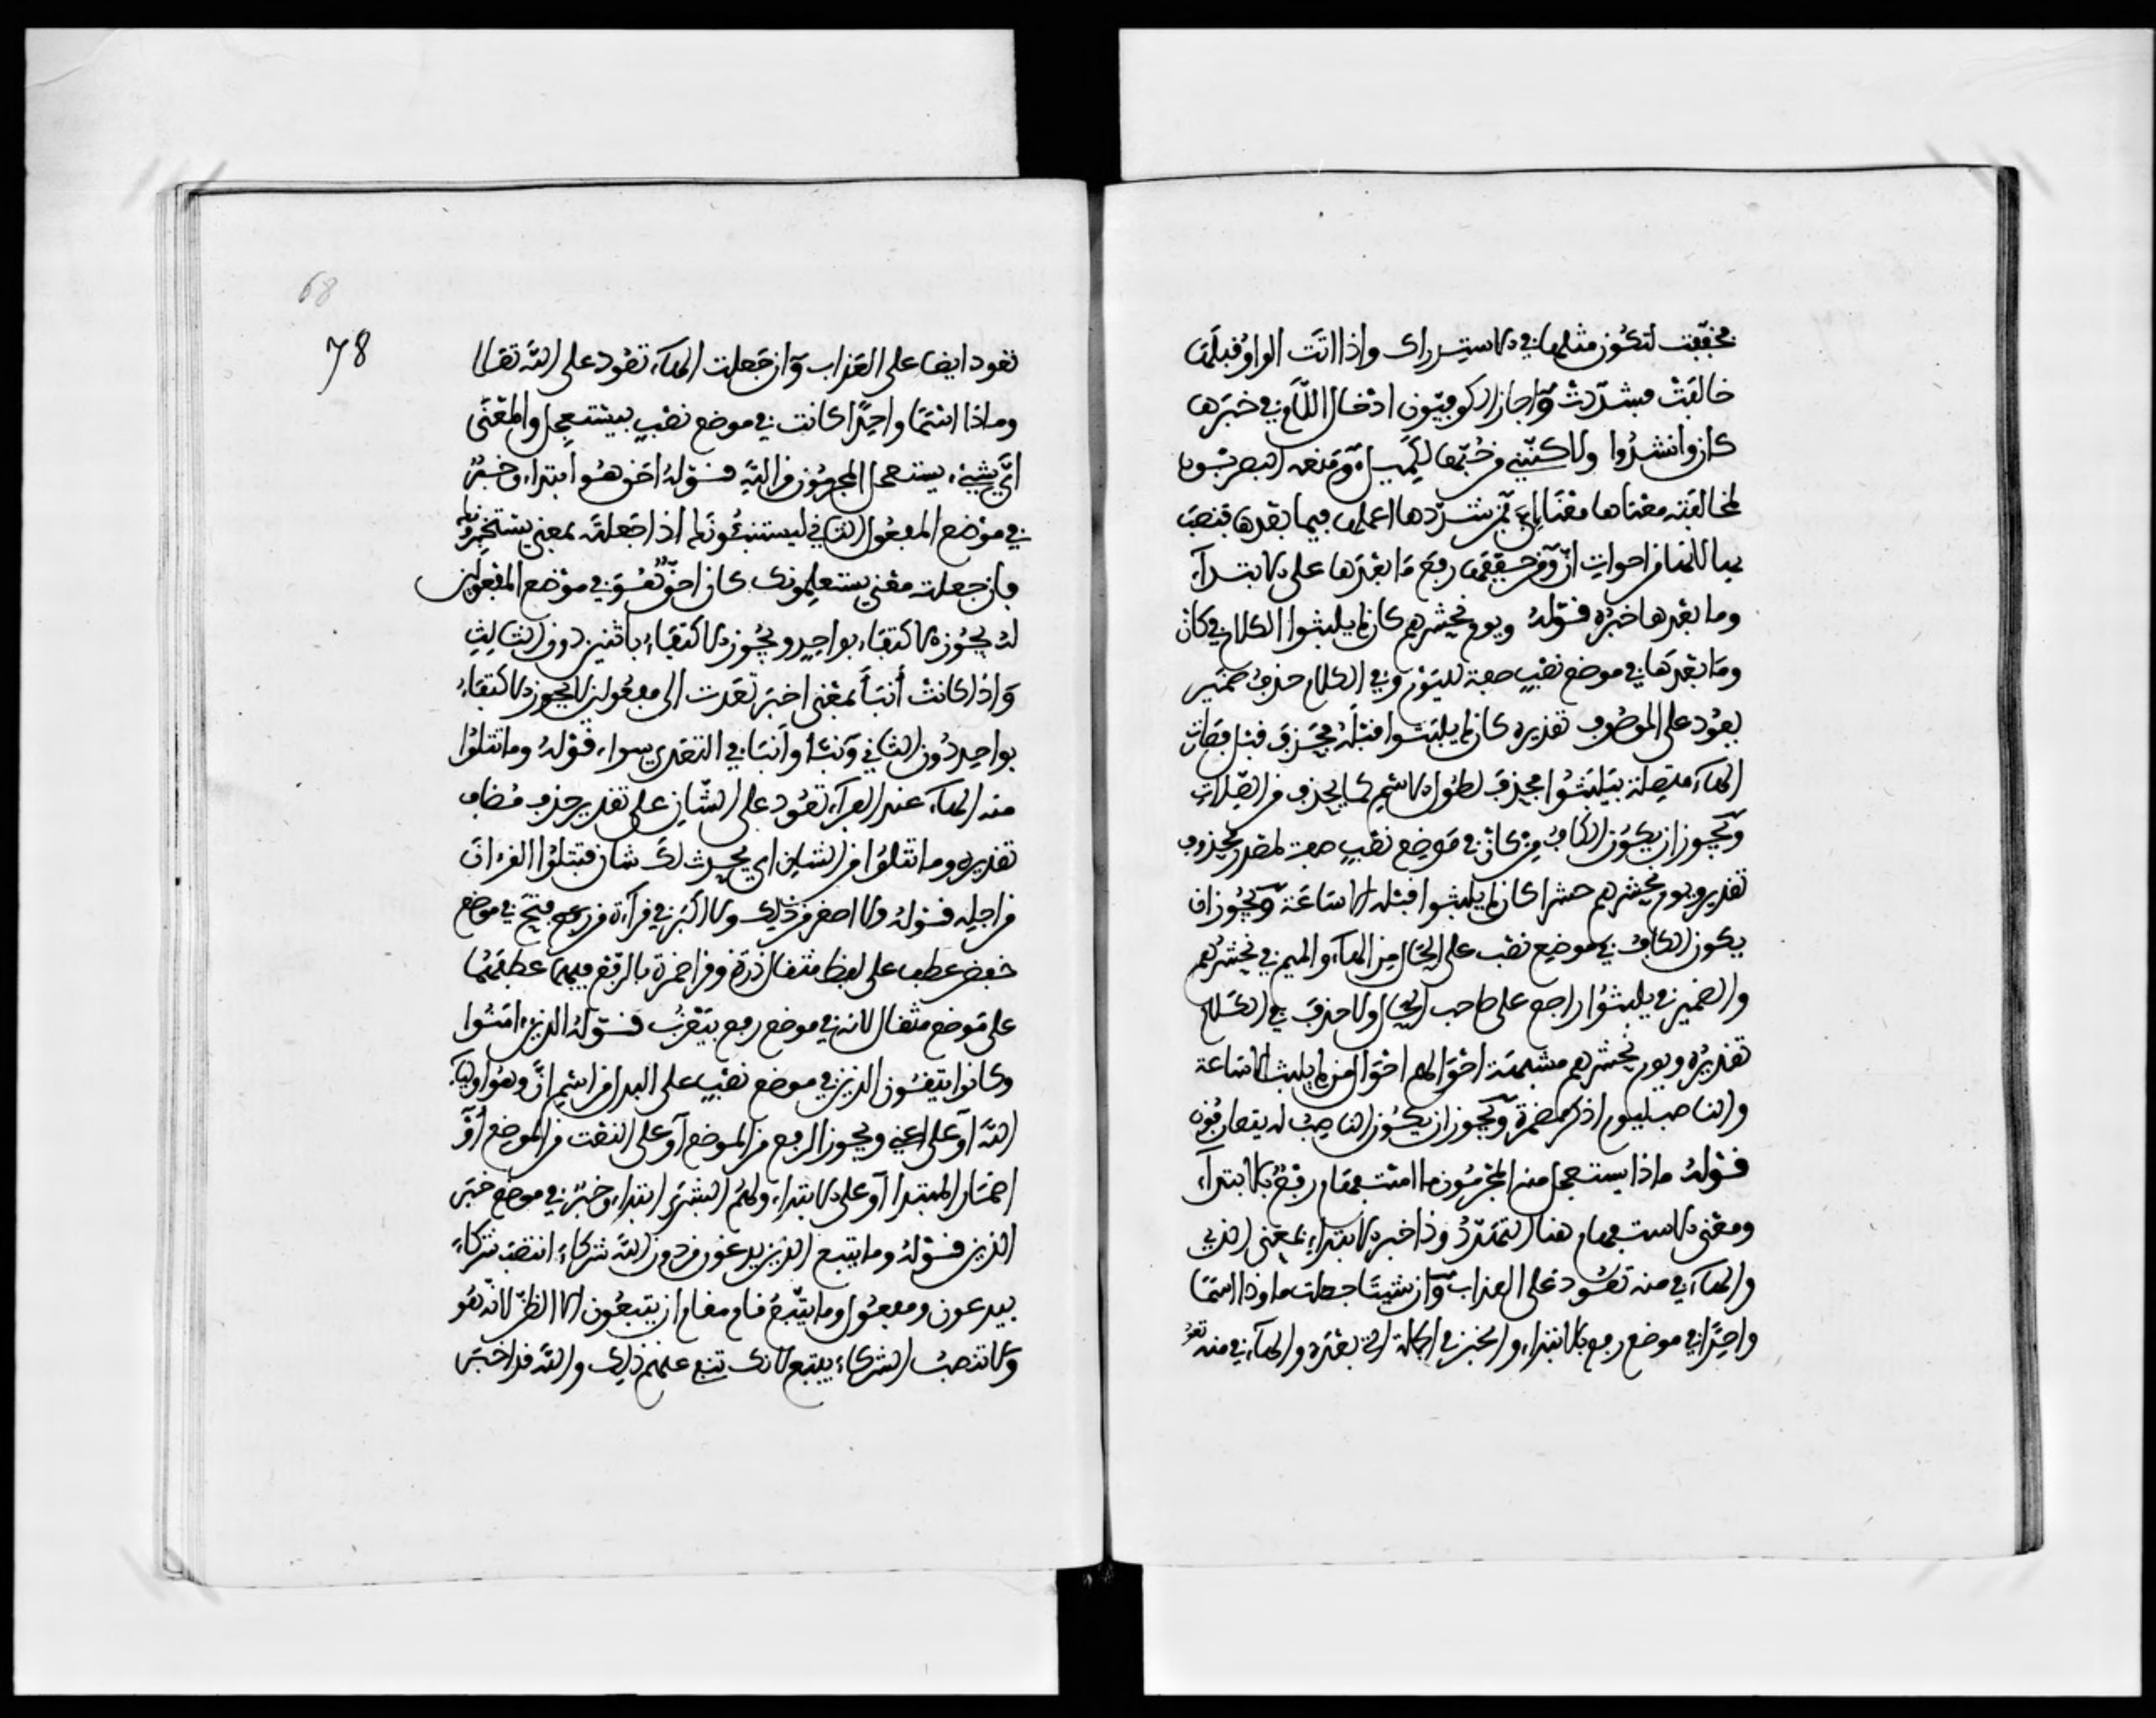 فخففت لتكون مثلها في الاستدراك واذا اتت الواو قبلها
خالفت فشددت واجاز الكوفيون ادخال اللام في خبرها
كان وانشدوا ولاكنني من حبها لكميد ومنعه البصريون
لمخالفته معناها معنا ان فمن شددها اعملها فيما بعدها فنصب
بها لانها من اخوات ان ومن خففها رفع ما بعدها على الابتداء
وما بعدها خبره قوله ويوم نحشرهم كان لم يلبثوا الكاف في كان
وما بعدها في موضع نصب صفة لليوم وفي الكلام حذف ضمير
يعود على الموصوف تقديره كان لم يلبثوا قبله فحذف قبل فصارت
الهاء متصلة بيلبثوا فحذفت لطول الاسم كما يحذف من الصلات
ويجوز ان يكون الكاف من كان في موضع نصب صفة لمصدر محذوف
تقديره ويوم نحشرهم حشرا كان لم يلبثوا قبله الا ساعة ويجوز ان
يكون الكاف في موضع نصب على الحال من الهاء والميم في نحشرهم
والضمير في يلبثوا راجع على صاحب الحال ولا حذف في الكلام
تقديره ويوم نحشرهم مشبهة احوالهم احوال من لم يلبث الا ساعة
والناصب ليوم اذكر مضمرة ويجوز ان يكون الناصب له يتعارفون
قوله ماذا يستعجل منه المجرمون ما استفهام رفع بالابتداء
ومعنى الاستفهام هنا التهدد وذا خبر الابتداء بمعنى الذي
والهاء في منه تعود على العذاب وان شئت جعلت ما وذا اسما
واحدا في موضع رفع بالابتداء والخبر في الجملة التي بعده والهاء في منه تعود
78
68
تعود ايضا على العذاب وان جعلت الهاء تعود على الله تعالى
وماذا اسما واحدا كانت في موضع نصب بيستعجل والمعنى
اي شيء يستعجل المجرمون من الله قوله احق هو ابتداء وخبر
في موضع المفعول الثاني ليستنبئونك اذا جعلته بمعنى يستخبرونك
فان جعلته معنى يستعلمونك كان احق هو في موضع المفعولين
لانه يجوز الاكتفاء بواحد ويجوز الاكتفاء باثنين دون الثالث
واذا كانت أنبأ بمعنى اخبر تعدت الى مفعولين لا يجوز الاكتفاء
بواحد دون الثاني ونبأ وأنبأ في التعدي سواء قوله وما تتلوا
منه الهاء عند الفراء تعود على الشان على تقدير حذف مضاف
تقديره وما تتلوا من الشان اي يحدث لك شان فتتلوا القرءان
من اجله قوله ولا اصغر من ذلك ولا اكبر في قراءة من فتح في موضع
خفض عطف على لفظ مثقال ذرة وقرا حمزة بالرفع فيهما عطفهما
على موضع مثقال لانه في موضع رفع بيعزب قوله الذين ءامنوا
وكانوا يتقون الذين في موضع نصب على البدل من اسم ان وهو اولياء
الله او على اعني ويجوز الرفع من الموضع او على النعت من الموضع او
اضمار المبتدا او على الابتداء ولهم البشرى ابتداء وخبر في موضع خبر
الذين قوله وما يتبع الذين يدعون من دون الله شركاء انتصب شركاء
بيدعون ومفعول وما يتبع قام مقام ان يتبعون الا الظن لانه هو
ولا تنصب الشركاء بيتبع لانك تنفي عنهم ذلك والله قد اخبر